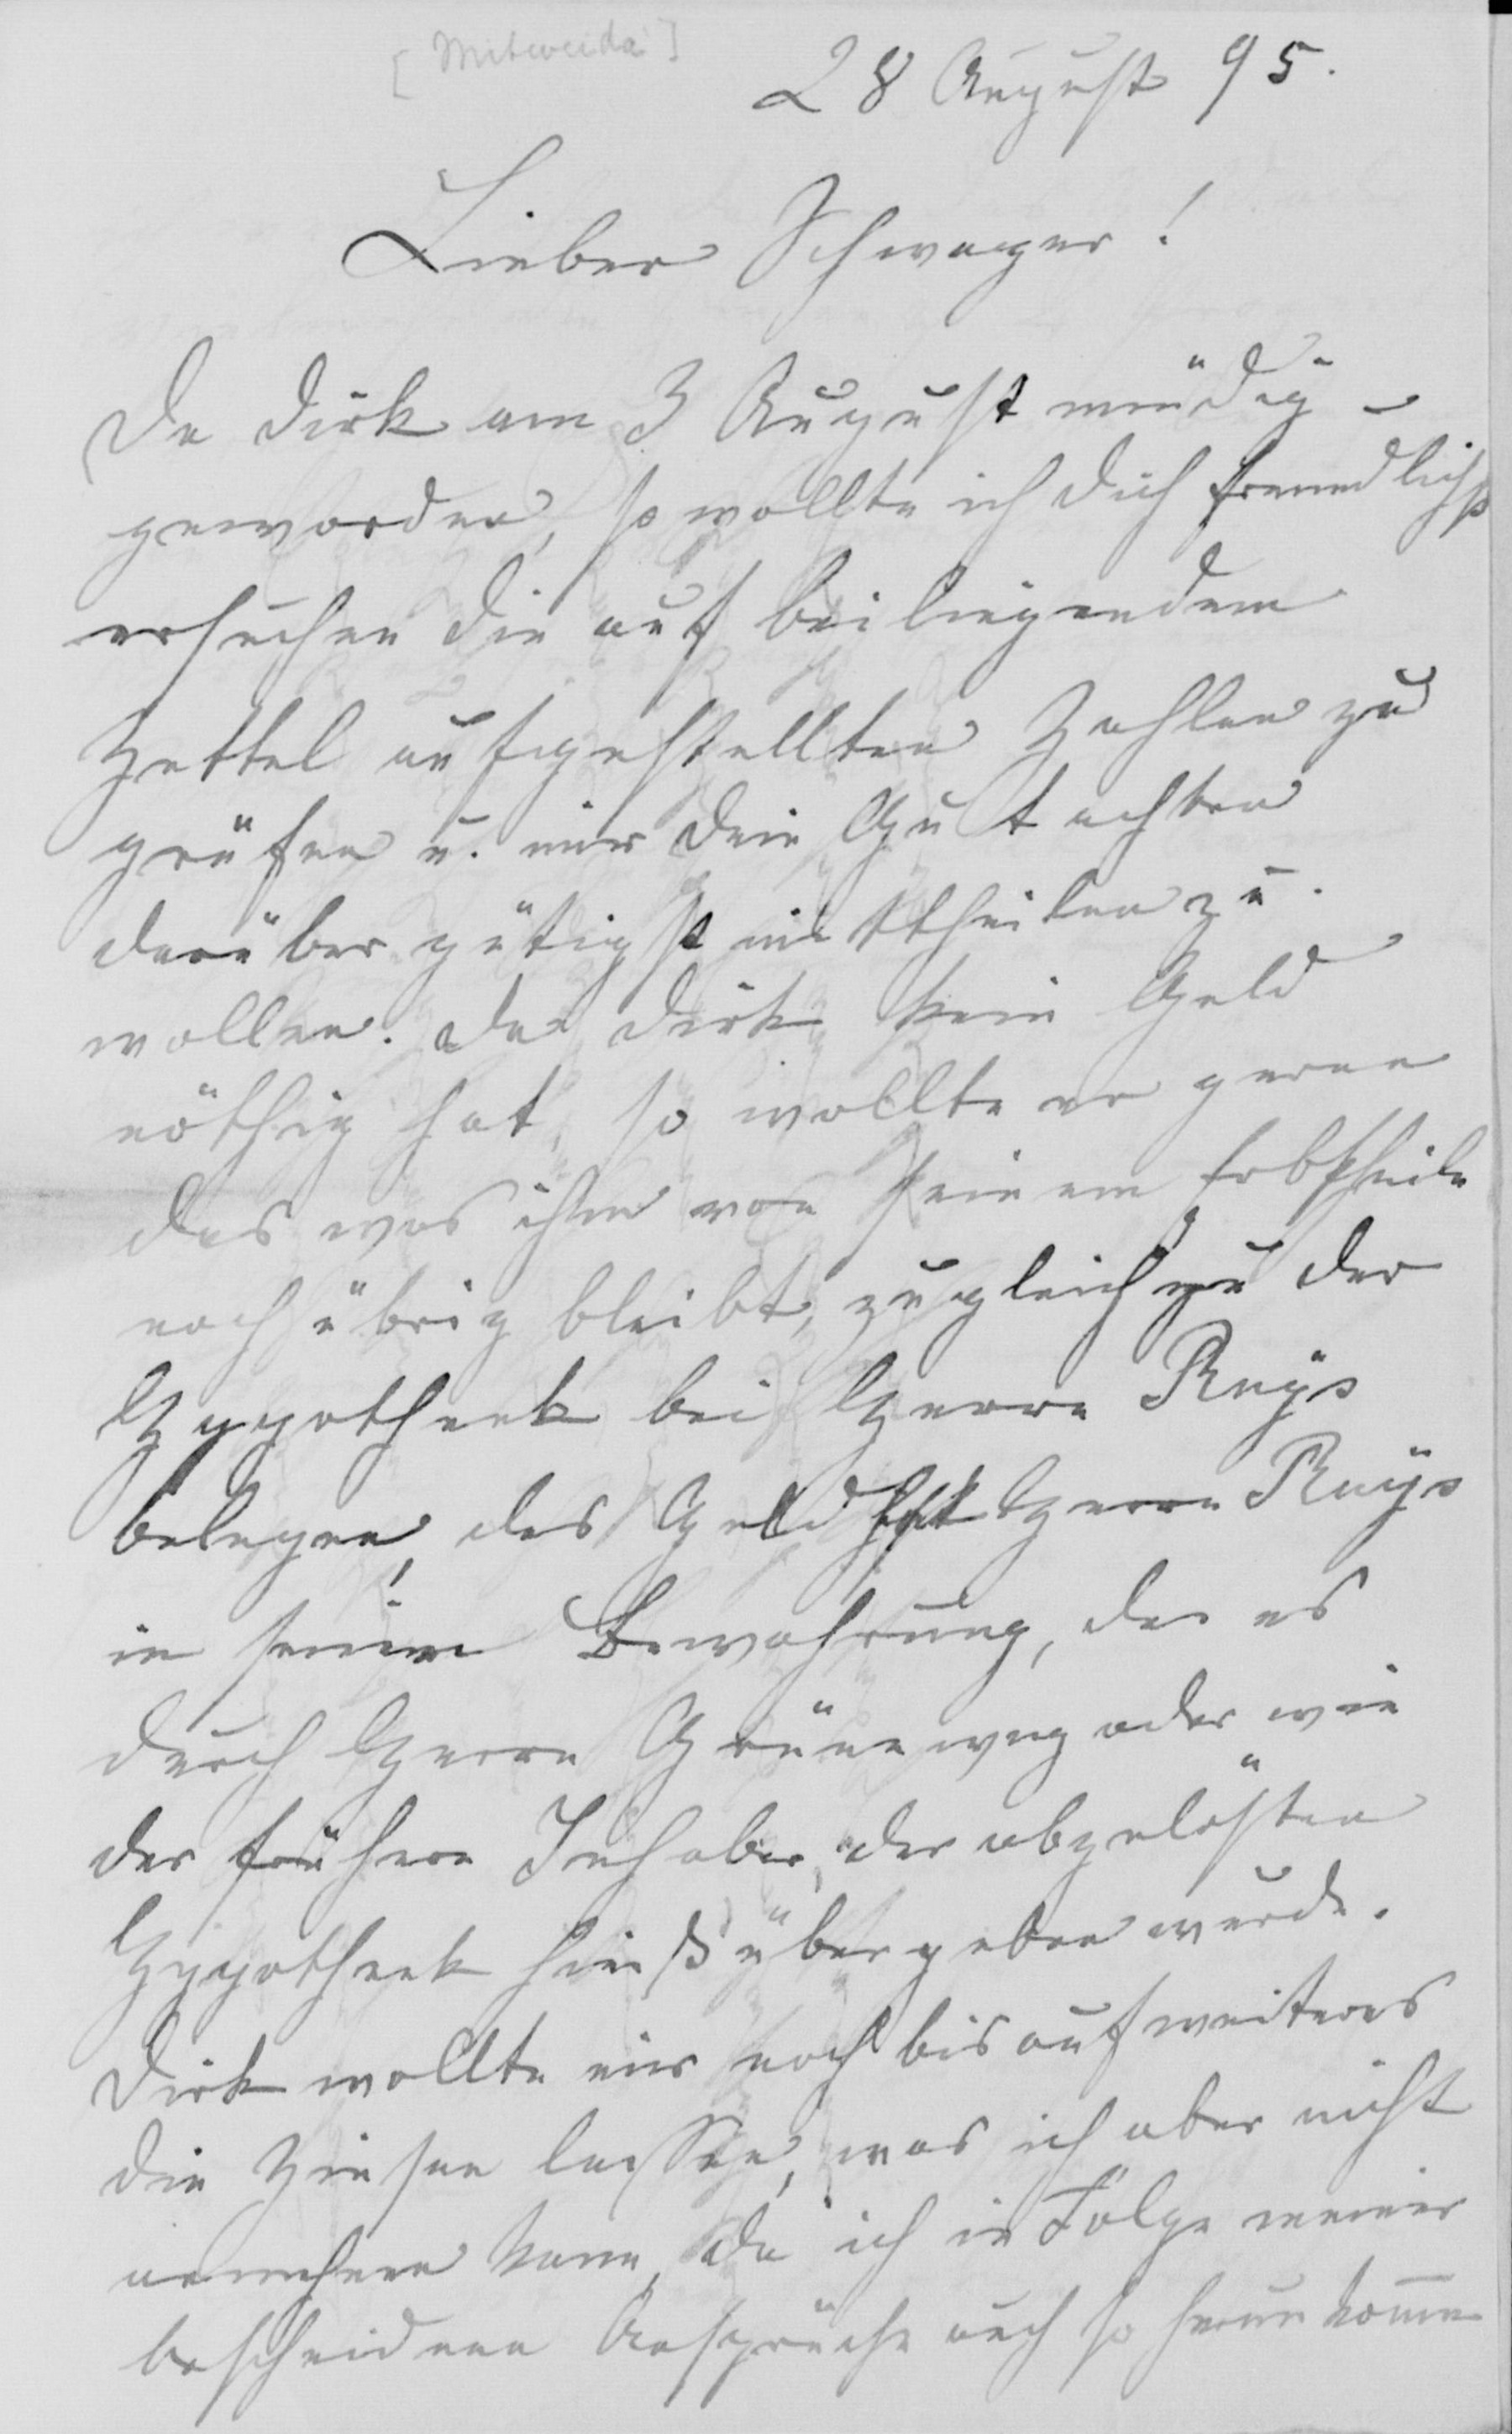 [Mitweida]
28 August 95.
Lieber Schwager!
Da Dirk am 3 August mündig
geworden, so wollte ich Dich freundlichst
ersuchen die auf beiliegendem
Zettel aufgestellten Zahlen zu
prüfen u. mir Dein Gutachten
darüber gütigst mittheilen zu
wollen. Da Dirk kein Geld
nöthig hat, so wollte er gerne
das was ihm von seinem Erbtheile
noch übrig bleibt, zugleich zu der
Hypotheek bei Herrn Ruÿs
belegen, das Geld hat Herrn Ruÿs
in seiner Bewahrung, da es
durch Herrn Grüneweg oder wie
der frühere Inhaber der abgelösten
Hypotheek hieß übergeben wurde.
Dirk wollte mir noch bis auf weiteres
die Zinsen lassen, was ich aber nicht
annehmen kann, da ich in Folge meiner
bescheidenen Ansprüche auch so herum komme